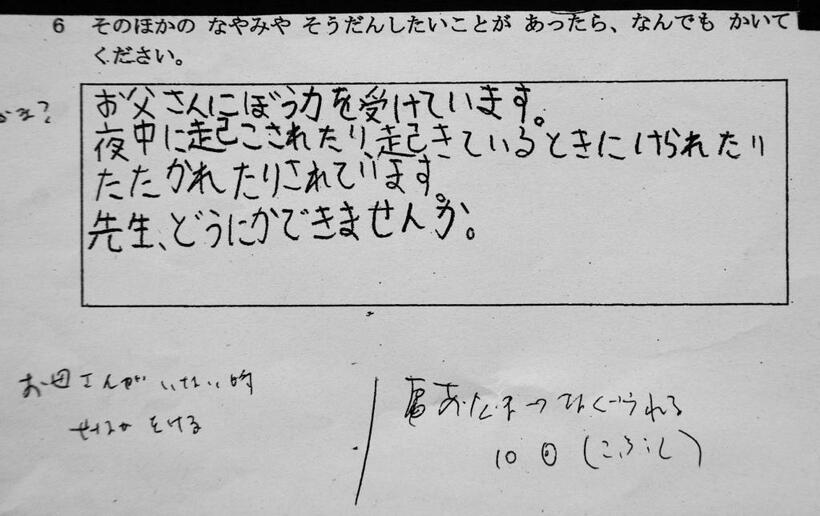 6 そのほかの なやみや そうだんしたいことが あったら、なんでも かいて
ください。
お父さんにぼう力を受けています。
夜中に起こされたり、起きているときにけられたり
たたかれたりされています。
先生、どうにかできませんか。
お母さんがいない時
せなかをける
あたまってなぐられる
10回(こぶし)